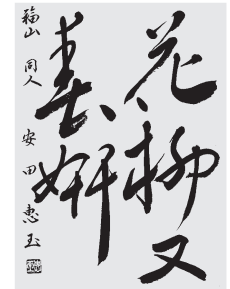 花柳又
春妍
福山 同人 安田惠玉